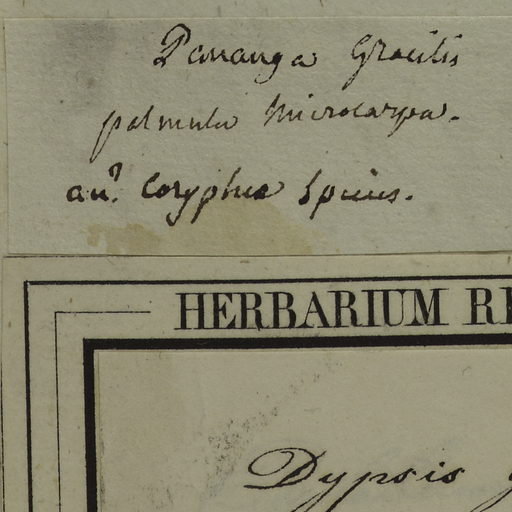 Pananga Gracilis
palmula Microcarpa.
au? Coryphae Species.
HERBARIUM
Dypsis